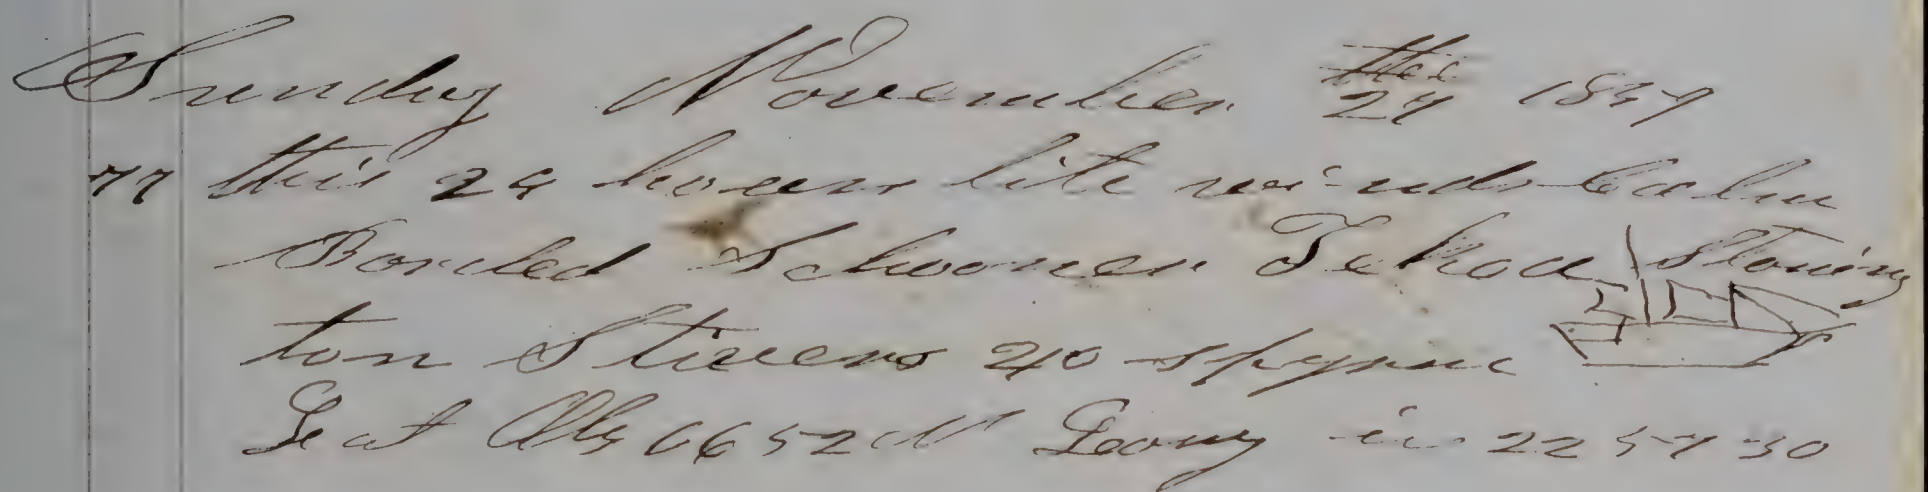 Sunday November the
this 24 hours lite winds Calm
Borded Schooner Tekoa Stoning
ton Stivers 240 spyrm
Lat Obs 52 Long in 22 57 30